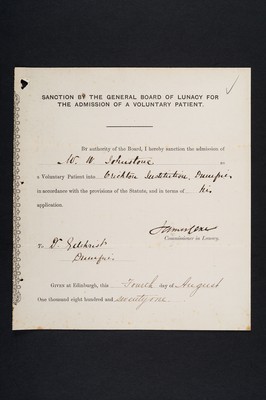 SANCTION BY THE GENERAL BOARD OF LUNACY FOR
THE ADMISSION OF A VOLUNTARY PATIENT.
BY authority of the Board, I hereby sanction the admission of
W. W. Johnstone as
a Voluntary Patient into Crichton Institution, Dumfries
in accordance with the provisions of the Statute, and in terms of his
application.
Commissioner in Lunacy.
To Dr. Gilchrist
Dumfries
GIVEN at Edinburgh, this Fourth day of August
One thousand eight hundred and seventy one.